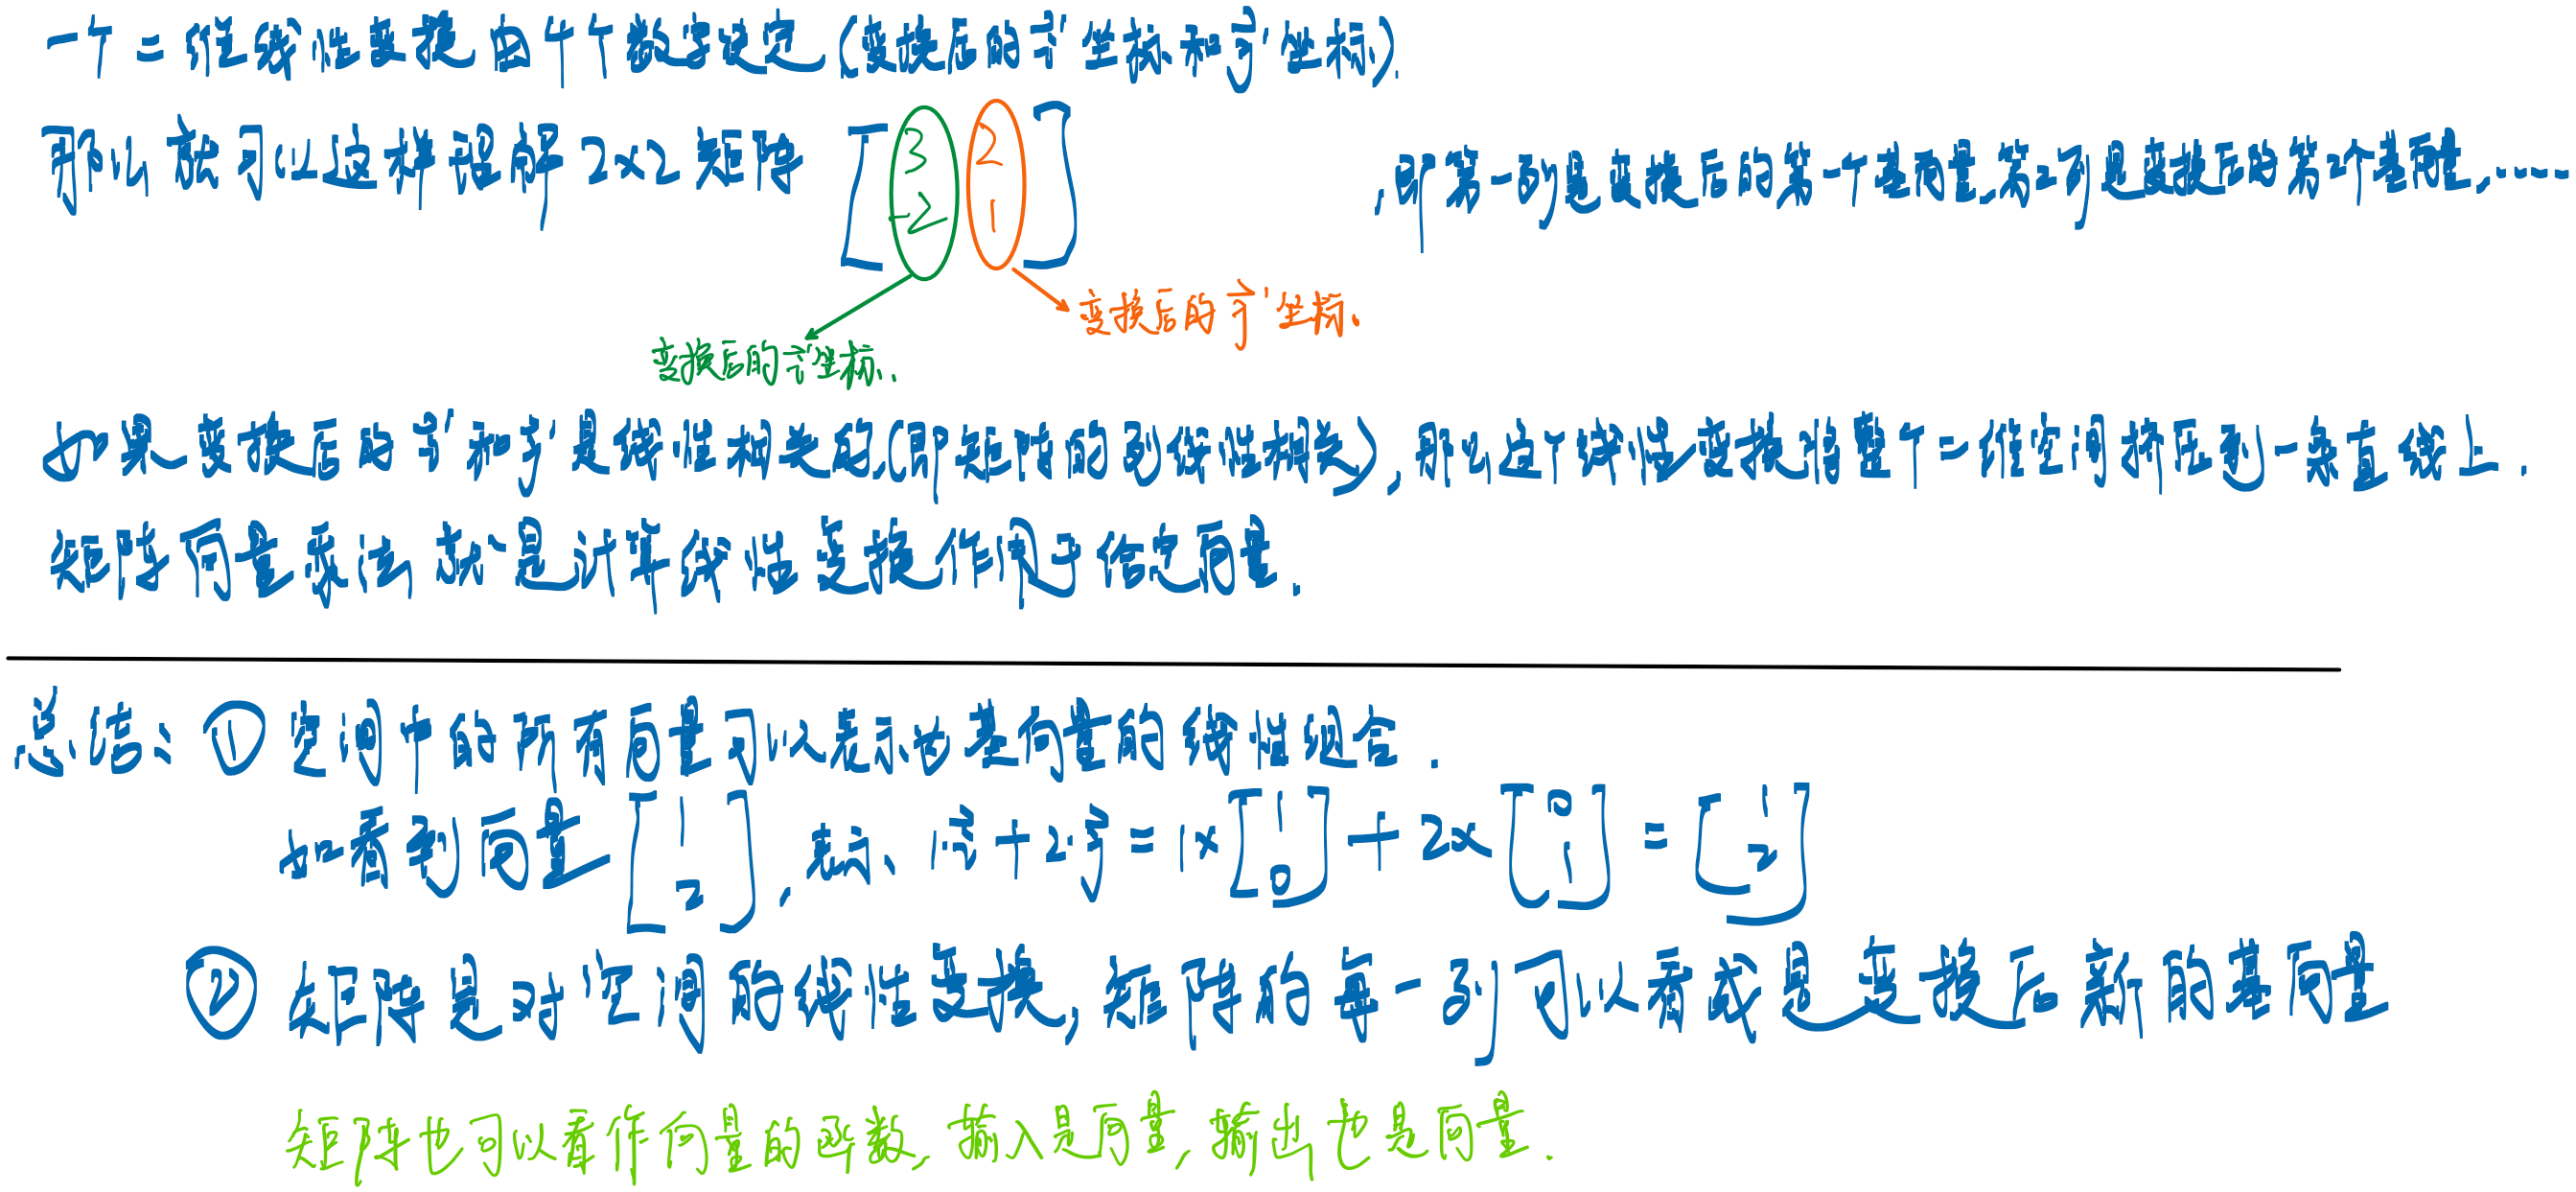 一个二维线性变换由4个数字决定(变换后的i⃗'坐标和j⃗'坐标).
那么就可以这样理解2×2矩阵 [3 2; -2 1] ,即第一列是变换后的第一个基向量,第2列是变换后的第2个基向量,……
变换后的j⃗'坐标.
变换后的i⃗'坐标.
如果变换后的i⃗'和j⃗'是线性相关的(即矩阵的列线性相关),那么这个线性变换将整个二维空间挤压到一条直线上.
矩阵向量乘法就是计算线性变换作用于给定向量.
总结: ① 空间中的所有向量可以表示为基向量的线性组合.
如看到向量 [1; 2], 表示 1·i⃗ + 2·j⃗ = 1×[1; 0] + 2×[0; 1] = [1; 2]
② 矩阵是对空间的线性变换, 矩阵的每一列可以看成是变换后新的基向量
矩阵也可以看作向量的函数, 输入是向量, 输出也是向量.